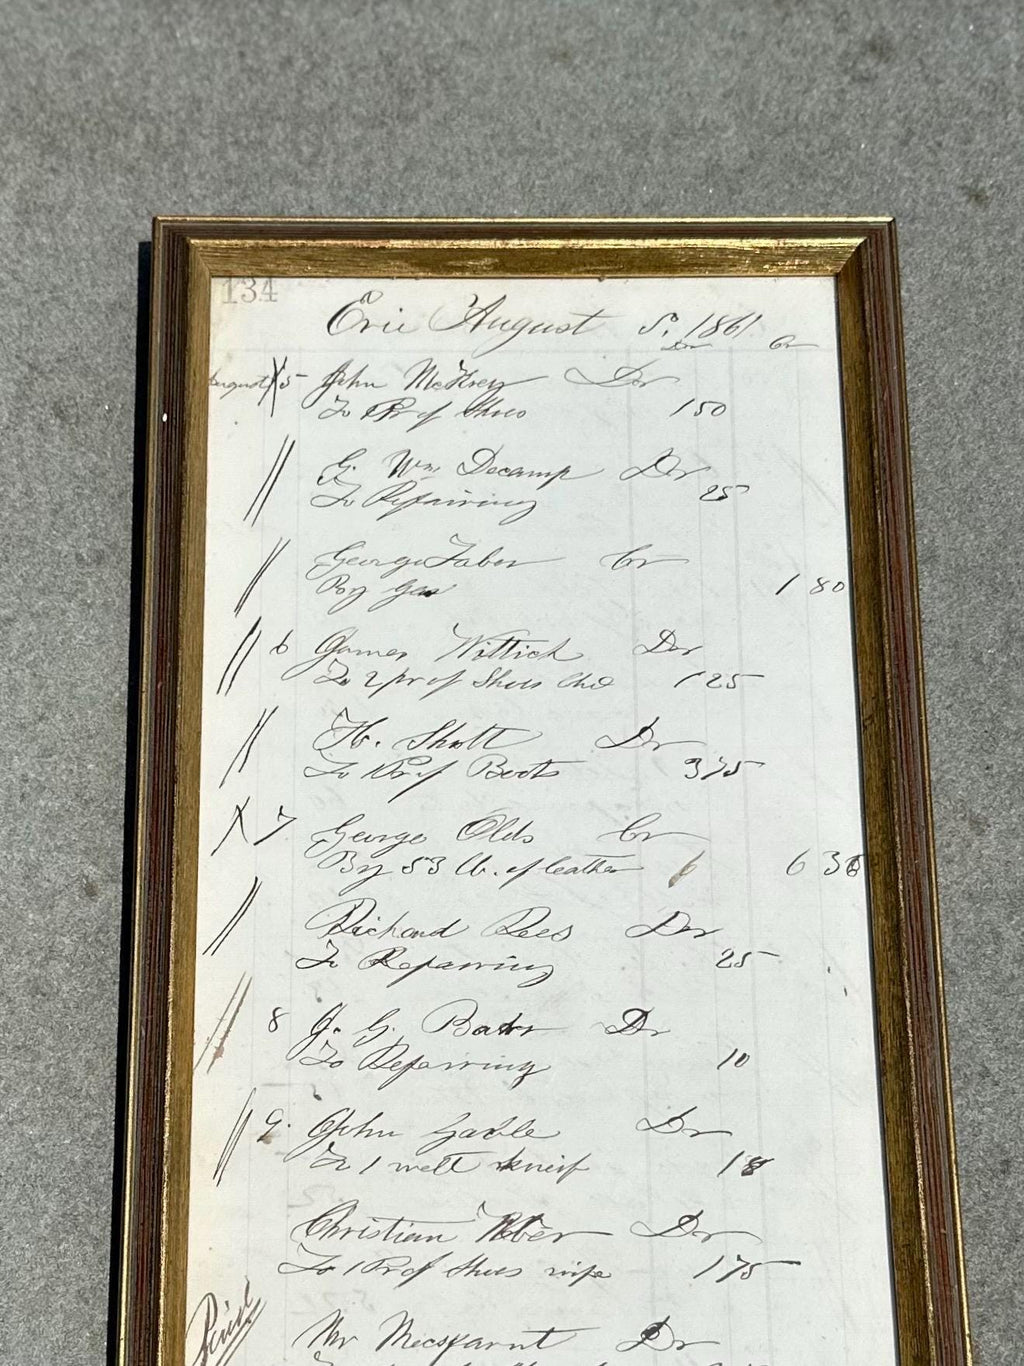 134
Erie August 5. 1861.
Dr Cr
August 5 John McKrey Dr
To 1 Pr of Shoes 150
G. Wm Decamp Dr
To Repairing 25
George Taber Cr
By Gas 1 80
6 James Wittich Dr
To 2 pr of Shoes Chd 125
H. Shott Dr
To 1 Pr of Boots 375
7 George Olds Cr
By 53 lb. of leather 6 36
Richard Rees Dr
To Repairing 25
8 J. G. Dr
To Repairing 10
9. John Gable Dr
To 1 welt kneif 18
Christian Dr
To 1 Pr of Shoes wife 175
Paid
Mr Dr